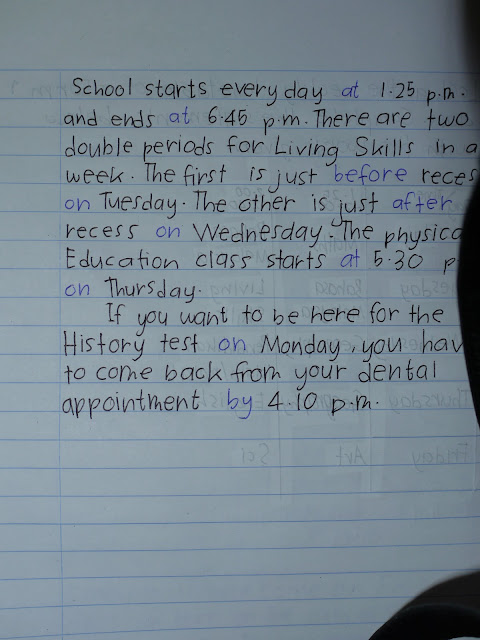 School starts every day at 1.25 p.m.
and ends at 6.45 p.m. There are two
double periods for Living Skills in a
week. The first is just before reces
on Tuesday. The other is just after
recess on Wednesday. The physica
Education class starts at 5.30 p
on Thursday.
If you want to be here for the
History test on Monday, you hav
to come back from your dental
appointment by 4.10 p.m.